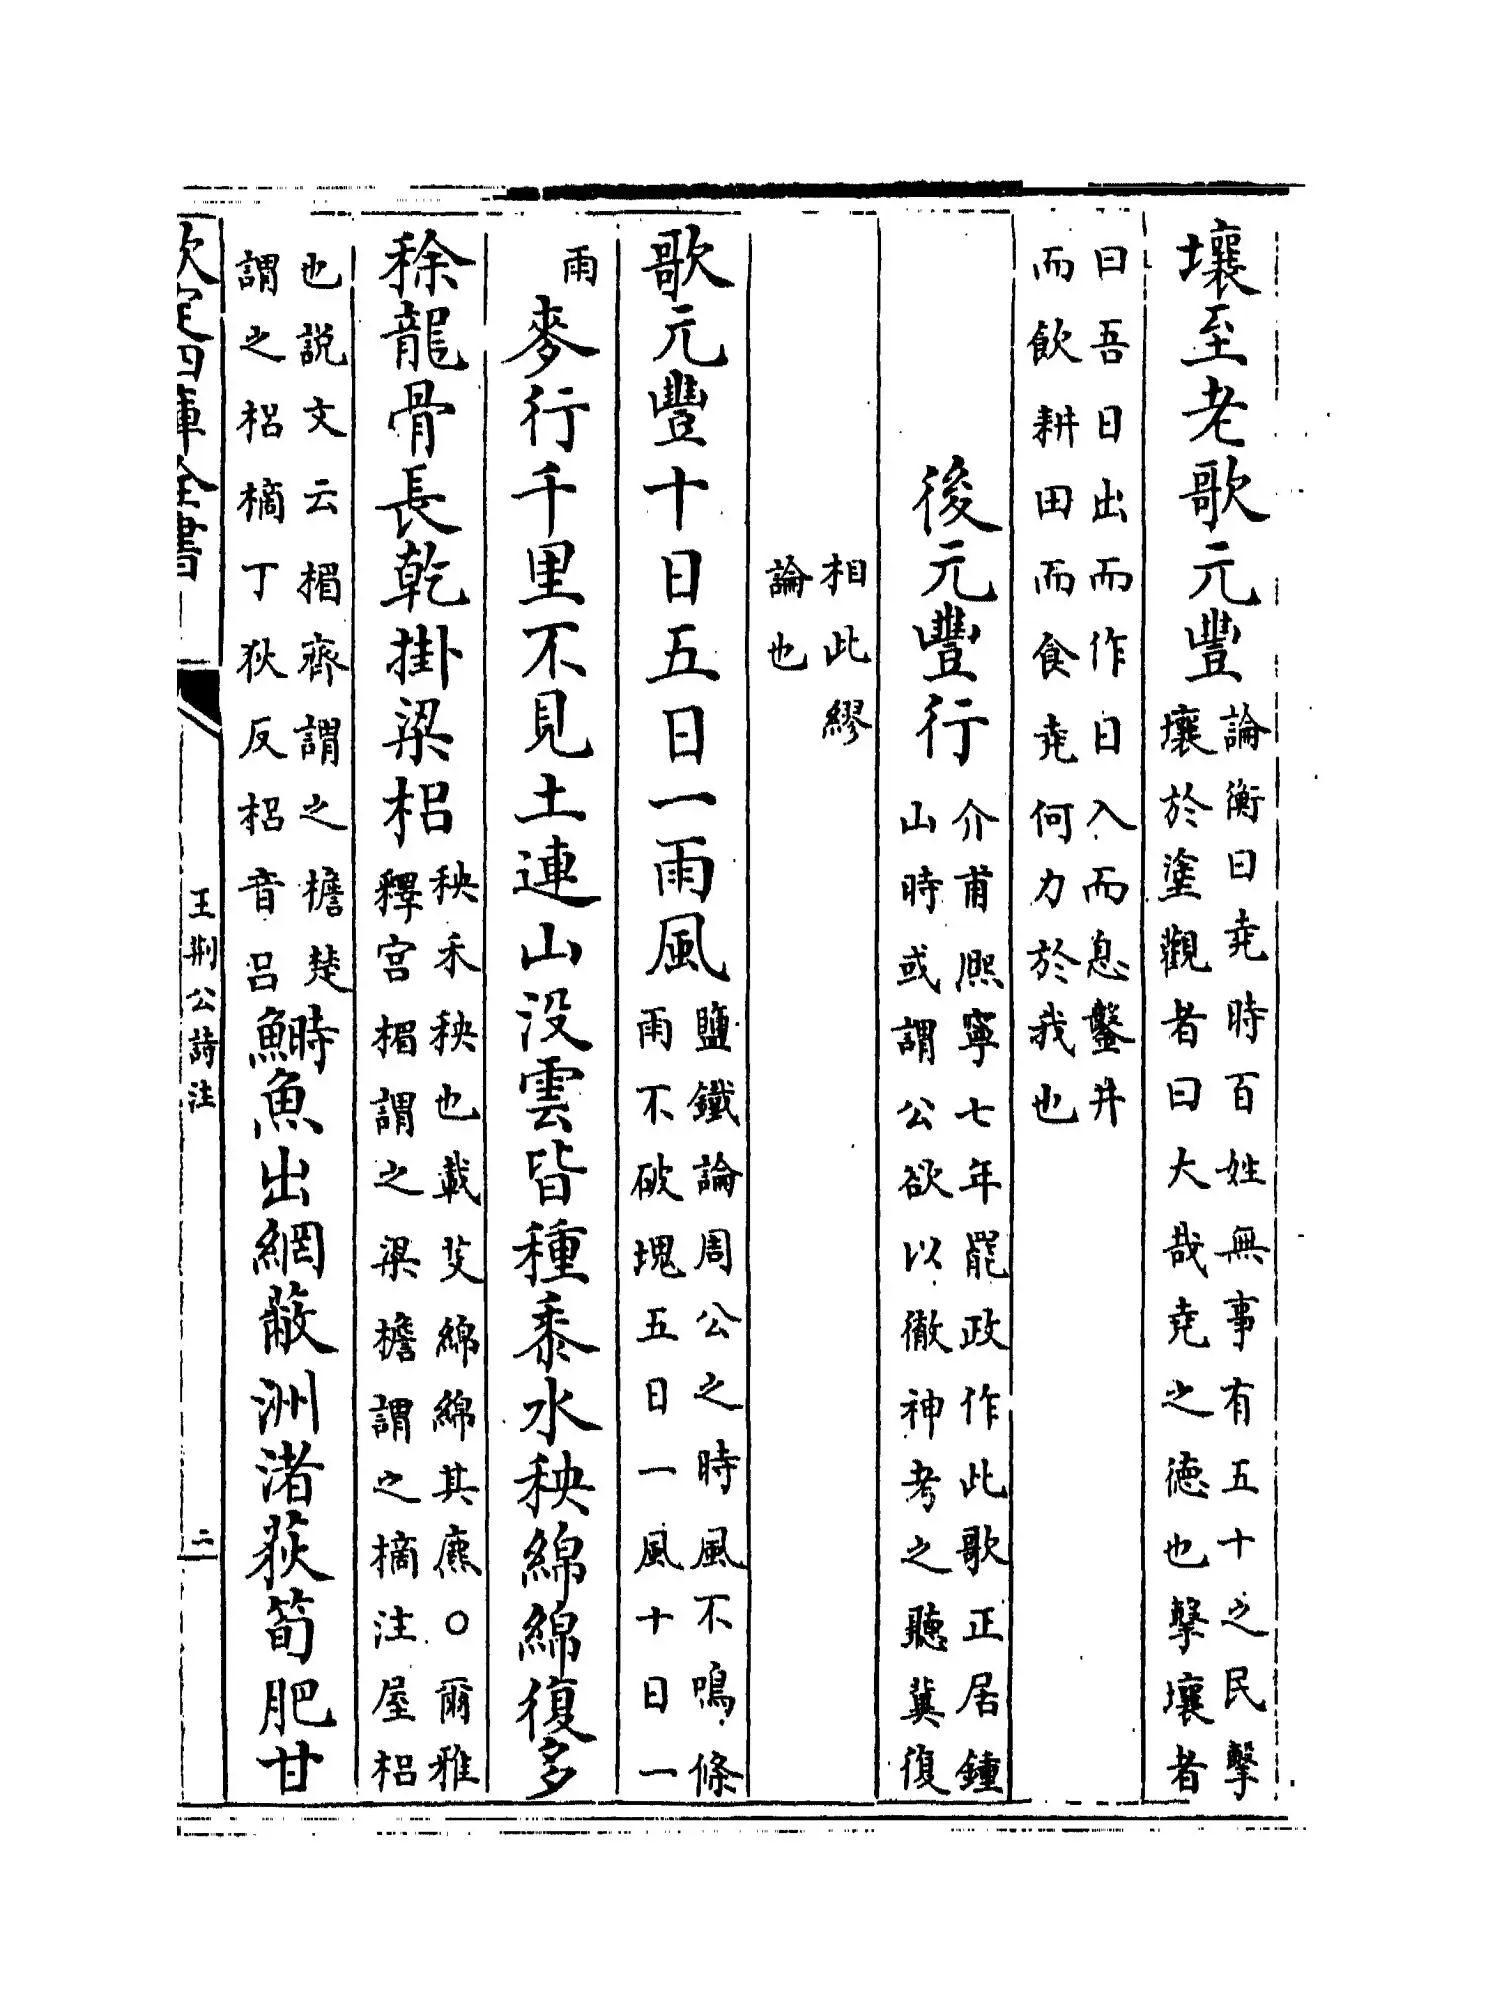 壤至老歌元豐論衡曰堯時百姓無事有五十之民擊
壤於塗觀者曰大哉堯之德也擊壤者
曰吾日出而作日入而息鑿井
而飲耕田而食堯何力於我也
後元豐行介甫熈寧七年罷政作此歌正居鍾
山時或謂公欲以徹神考之聽冀復
相此繆
論也
歌元豐十日五日一雨風鹽鐵論周公之時風不鳴條
雨不破塊五日一風十日一
雨
麥行千里不見土連山沒雲皆種黍水秧綿綿復多
稌龍骨長乾掛梁梠秧禾秧也載芟綿綿其麃○爾雅
釋宫楣謂之梁檐謂之樀注屋梠
也説文云楣齊謂之檐楚
謂之梠樀丁狄反梠音吕
鰣魚出網蔽洲渚荻筍肥甘
欽定四庫全書
王荆公詩注
二